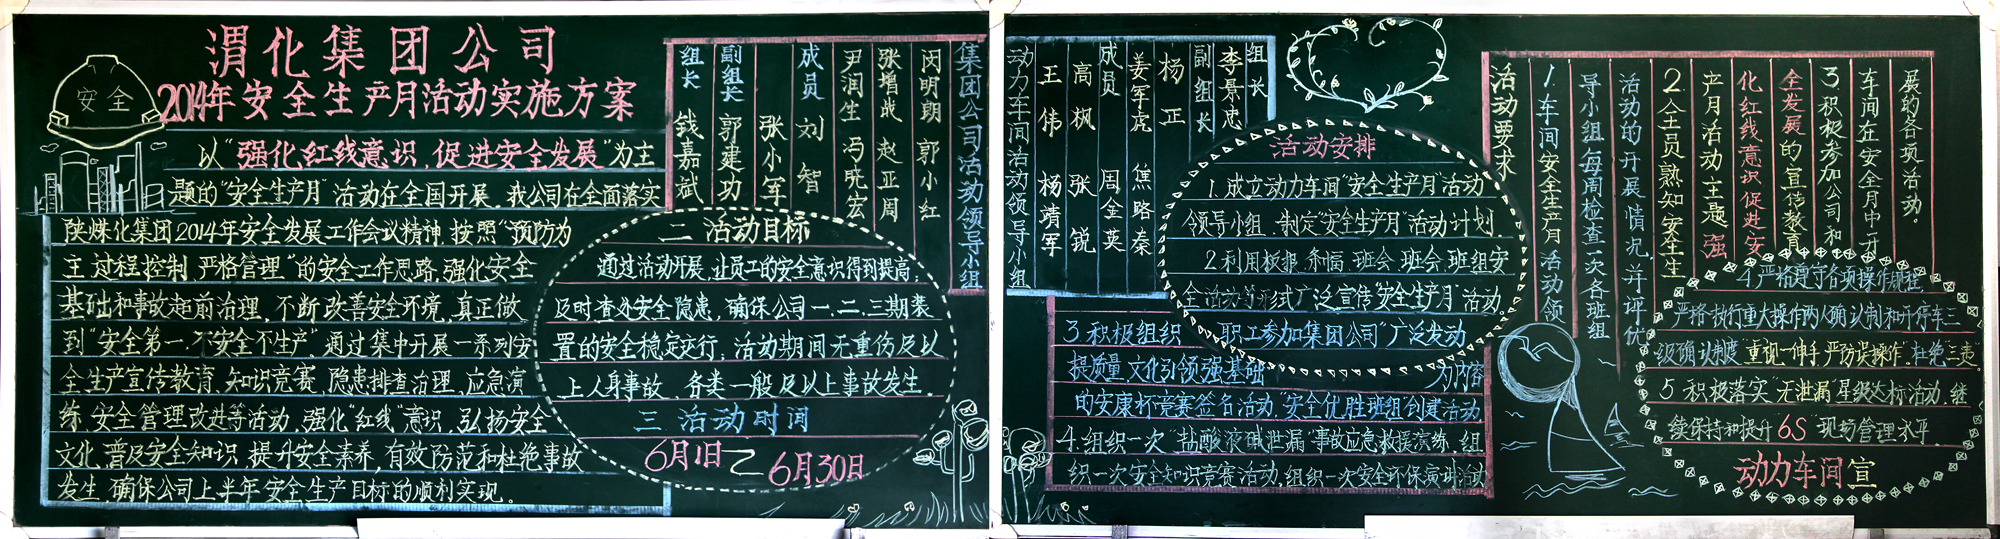 渭化集团公司
2014年安全生产月活动实施方案
安全
以“强化红线意识,促进安全发展”为主
题的“安全生产月”活动在全国开展。我公司在全面落实
陕煤化集团2014年安全发展工作会议精神,按照“预防为
主,过程控制,严格管理”的安全工作思路,强化安全
基础和事故超前治理,不断改善安全环境,真正做
到“安全第一,不安全不生产”。通过集中开展一系列安
全生产宣传教育、知识竞赛、隐患排查治理、应急演
练、安全管理改进等活动,强化“红线”意识,弘扬安全
文化,普及安全知识,提升安全素养,有效防范和杜绝事故
发生,确保公司上半年安全生产目标的顺利实现。
集团公司活动领导小组
组长 钱嘉斌
副组长 郭建功
张小军
成员 刘智
尹润生 冯晓宏
张增成 赵亚周
闵明朗 郭小红
二 活动目标
通过活动开展,让员工的安全意识得到提高,
及时查处安全隐患,确保公司一、二、三期装
置的安全稳定运行,活动期间无重伤及以
上人身事故、各类一般及以上事故发生。
三 活动时间
6月1日~6月30日
动力车间活动领导小组
组长 李景忠
副组长 杨正
姜军虎 焦路秦
成员 周金英
高枫 张锐
王伟 杨靖军
活动安排
1.成立动力车间“安全生产月”活动
领导小组、制定“安全生产月”活动计划
2.利用板报、条幅、班会、班会、班组安
全活动等形式广泛宣传“安全生产月”活动。
3.积极组织 职工参加集团公司“广泛发动
提质量,文化引领强基础 为内容
的安康杯竞赛签名活动,“安全优胜班组”创建活动
4.组织一次“盐酸液碱泄漏”事故应急救援演练,组
织一次安全知识竞赛活动,组织一次安全环保演讲活动
活动要求
1.车间安全生产月活动领
导小组每周检查一次各班组
活动的开展情况,并评优
2.全员熟知安全生
产月活动主题“强
化红线意识促进安
全发展”的宣传教育
3.积极参加公司和
车间在安全月中开
展的各项活动。
4.严格遵守各项操作规程,
严格执行重大操作两人确认制和开停车三
级确认制度“重视一伸手,严防误操作”,杜绝“三违”
5.积极落实“无泄漏”星级达标活动,继
续保持和提升“6S”现场管理水平。
动力车间宣